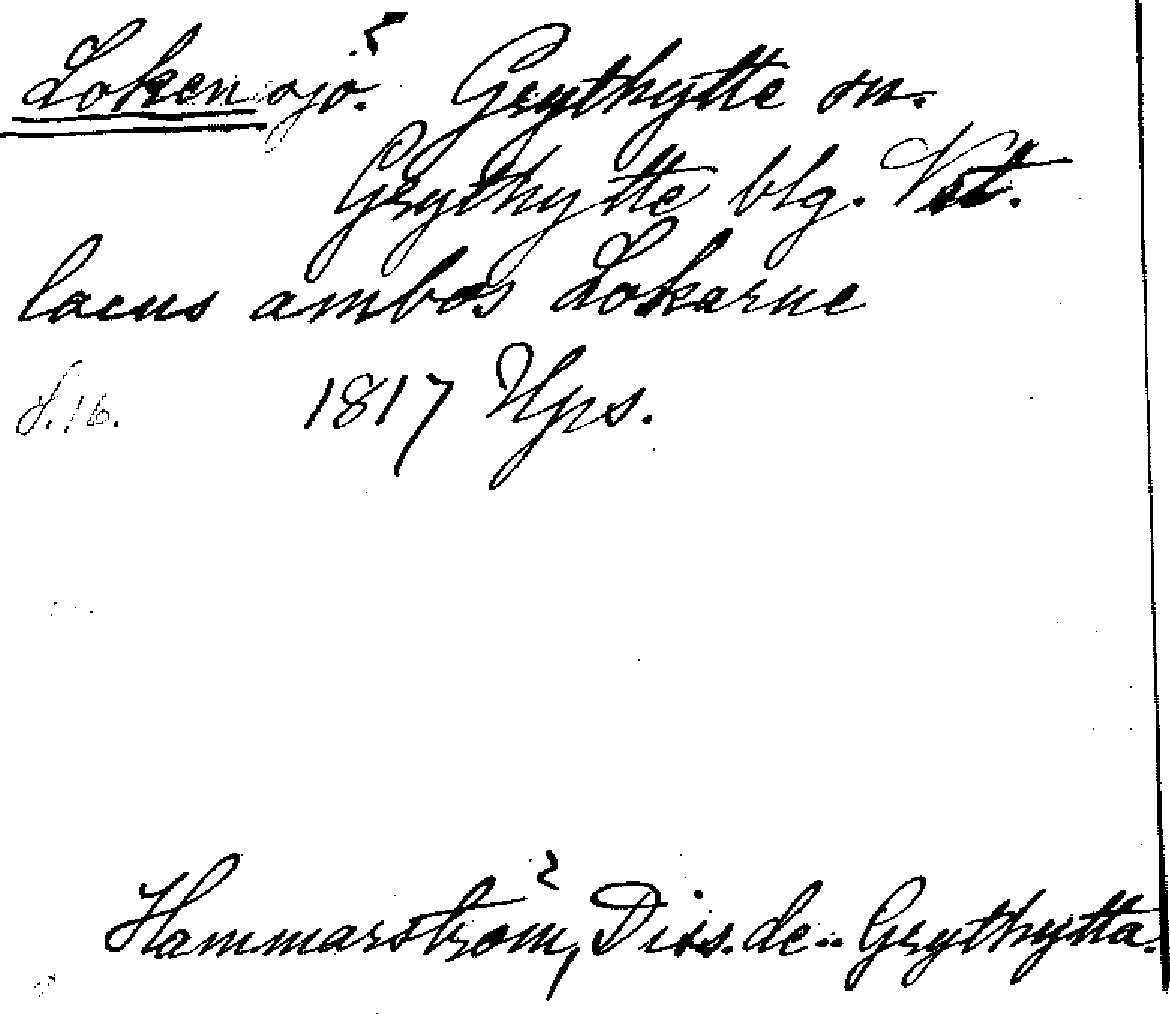 Loken sjö. Grythytte sn.
Grythytte blg. Vstl.
lacus ambos Lokarne
s. 16. 1817 Ups.
Hammarström, Diss. de.. Grythytta.